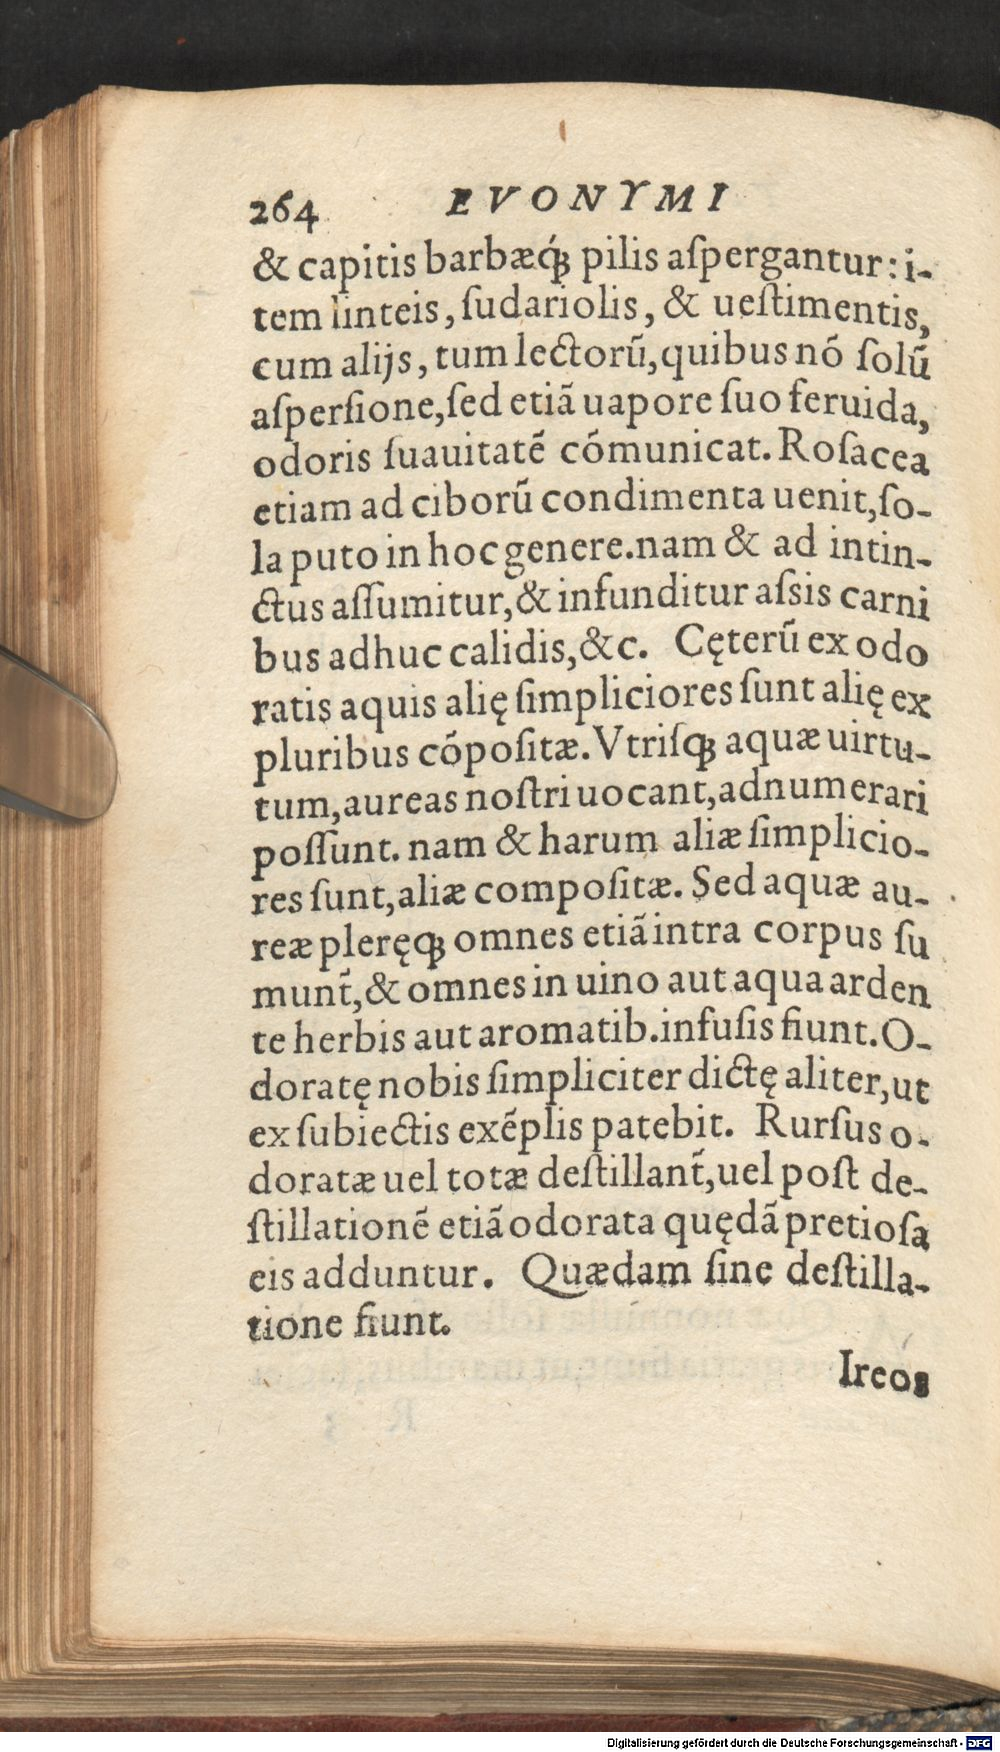 264 EVONYMI
& capitis barbæq́ꝫ pilis aſpergantur: i-
tem linteis, ſudariolis, & ueſtimentis,
cum alijs, tum lectorũ, quibus nõ ſolũ
aſperſione, ſed etiã uapore ſuo feruida,
odoris ſuauitatẽ cõmunicat. Roſacea
etiam ad ciborũ condimenta uenit, ſo-
la puto in hoc genere. nam & ad intin-
ctus aſſumitur, & infunditur aſsis carni
bus adhuc calidis, &c. Cęterũ ex odo
ratis aquis alię ſimpliciores ſunt alię ex
pluribus cõpoſitæ. Vtriſqꝫ aquæ uirtu-
tum, aureas noſtri uocant, adnumerari
poſſunt. nam & harum aliæ ſimplicio-
res ſunt, aliæ compoſitæ. Sed aquæ au-
reæ pleręqꝫ omnes etiã intra corpus ſu
munt̃, & omnes in uino aut aqua arden
te herbis aut aromatib. infuſis fiunt. O-
doratę nobis ſimpliciter dictę aliter, ut
ex ſubiectis exẽplis patebit. Rurſus o-
doratæ uel totæ deſtillant̃, uel poſt de-
ſtillationẽ etiã odorata quędã pretioſa
eis adduntur. Quædam ſine deſtilla-
tione fiunt.
Ireos
Digitalisierung gefördert durch die Deutsche Forschungsgemeinschaft - DFG